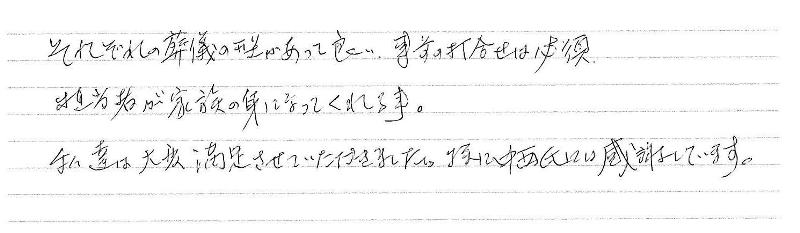 それぞれの葬儀の形があって良い、事前の打合せは必須
担当者が家族の身になってくれる事。
私達は大変満足させていただきました。特に中西氏には感謝しています。